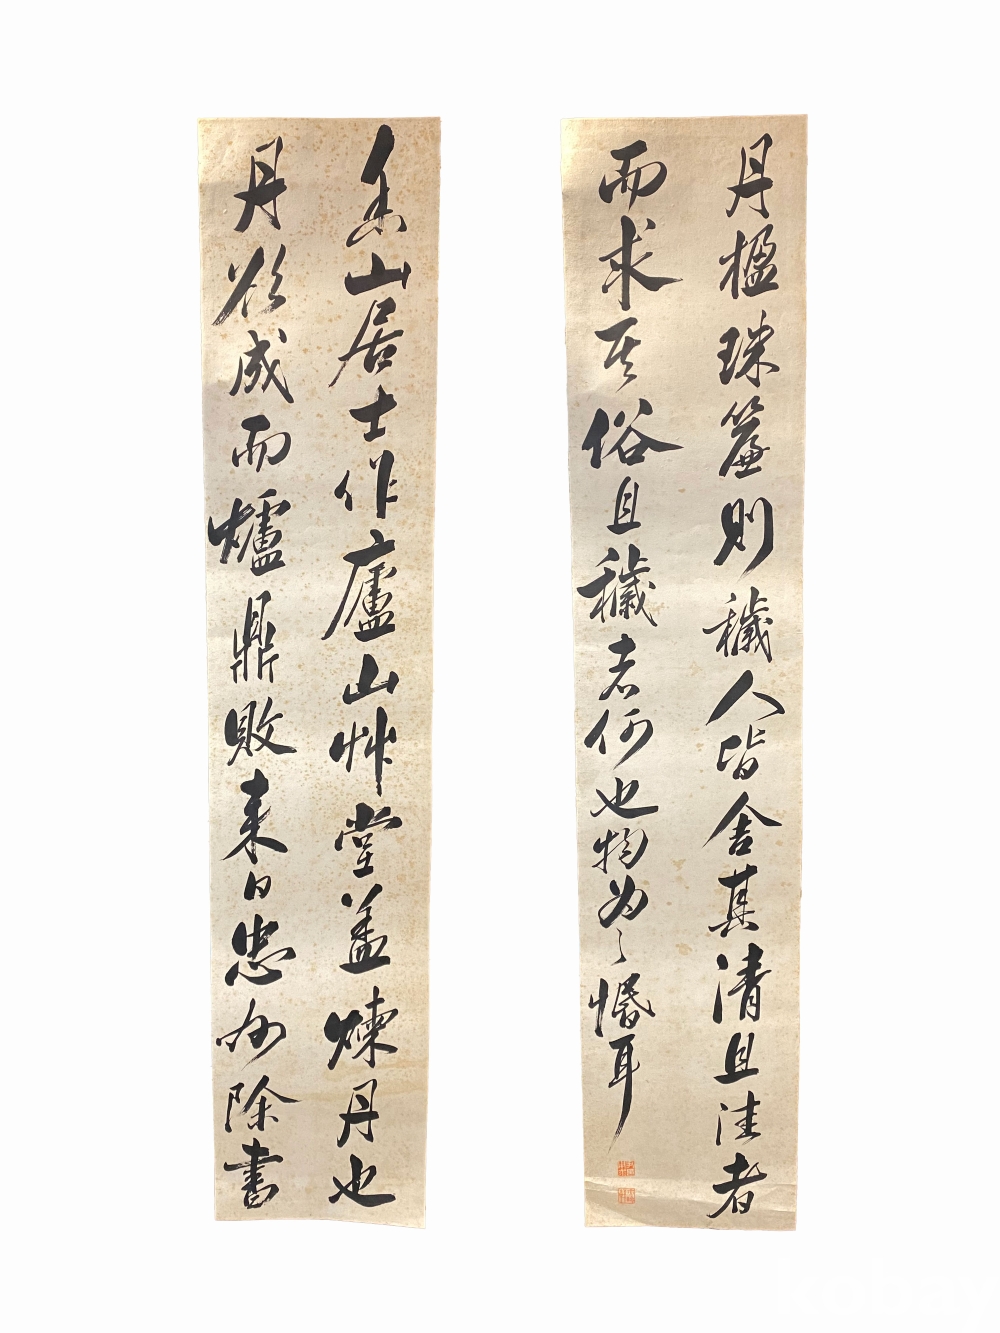 丹楹珠簾則穢人皆舍其清且洼者
而求其俗且穢者何也物為之惛耳
香山居士作廬山艸堂蓋煉丹也
丹欲成而爐鼎敗來日忠州除書
kobay